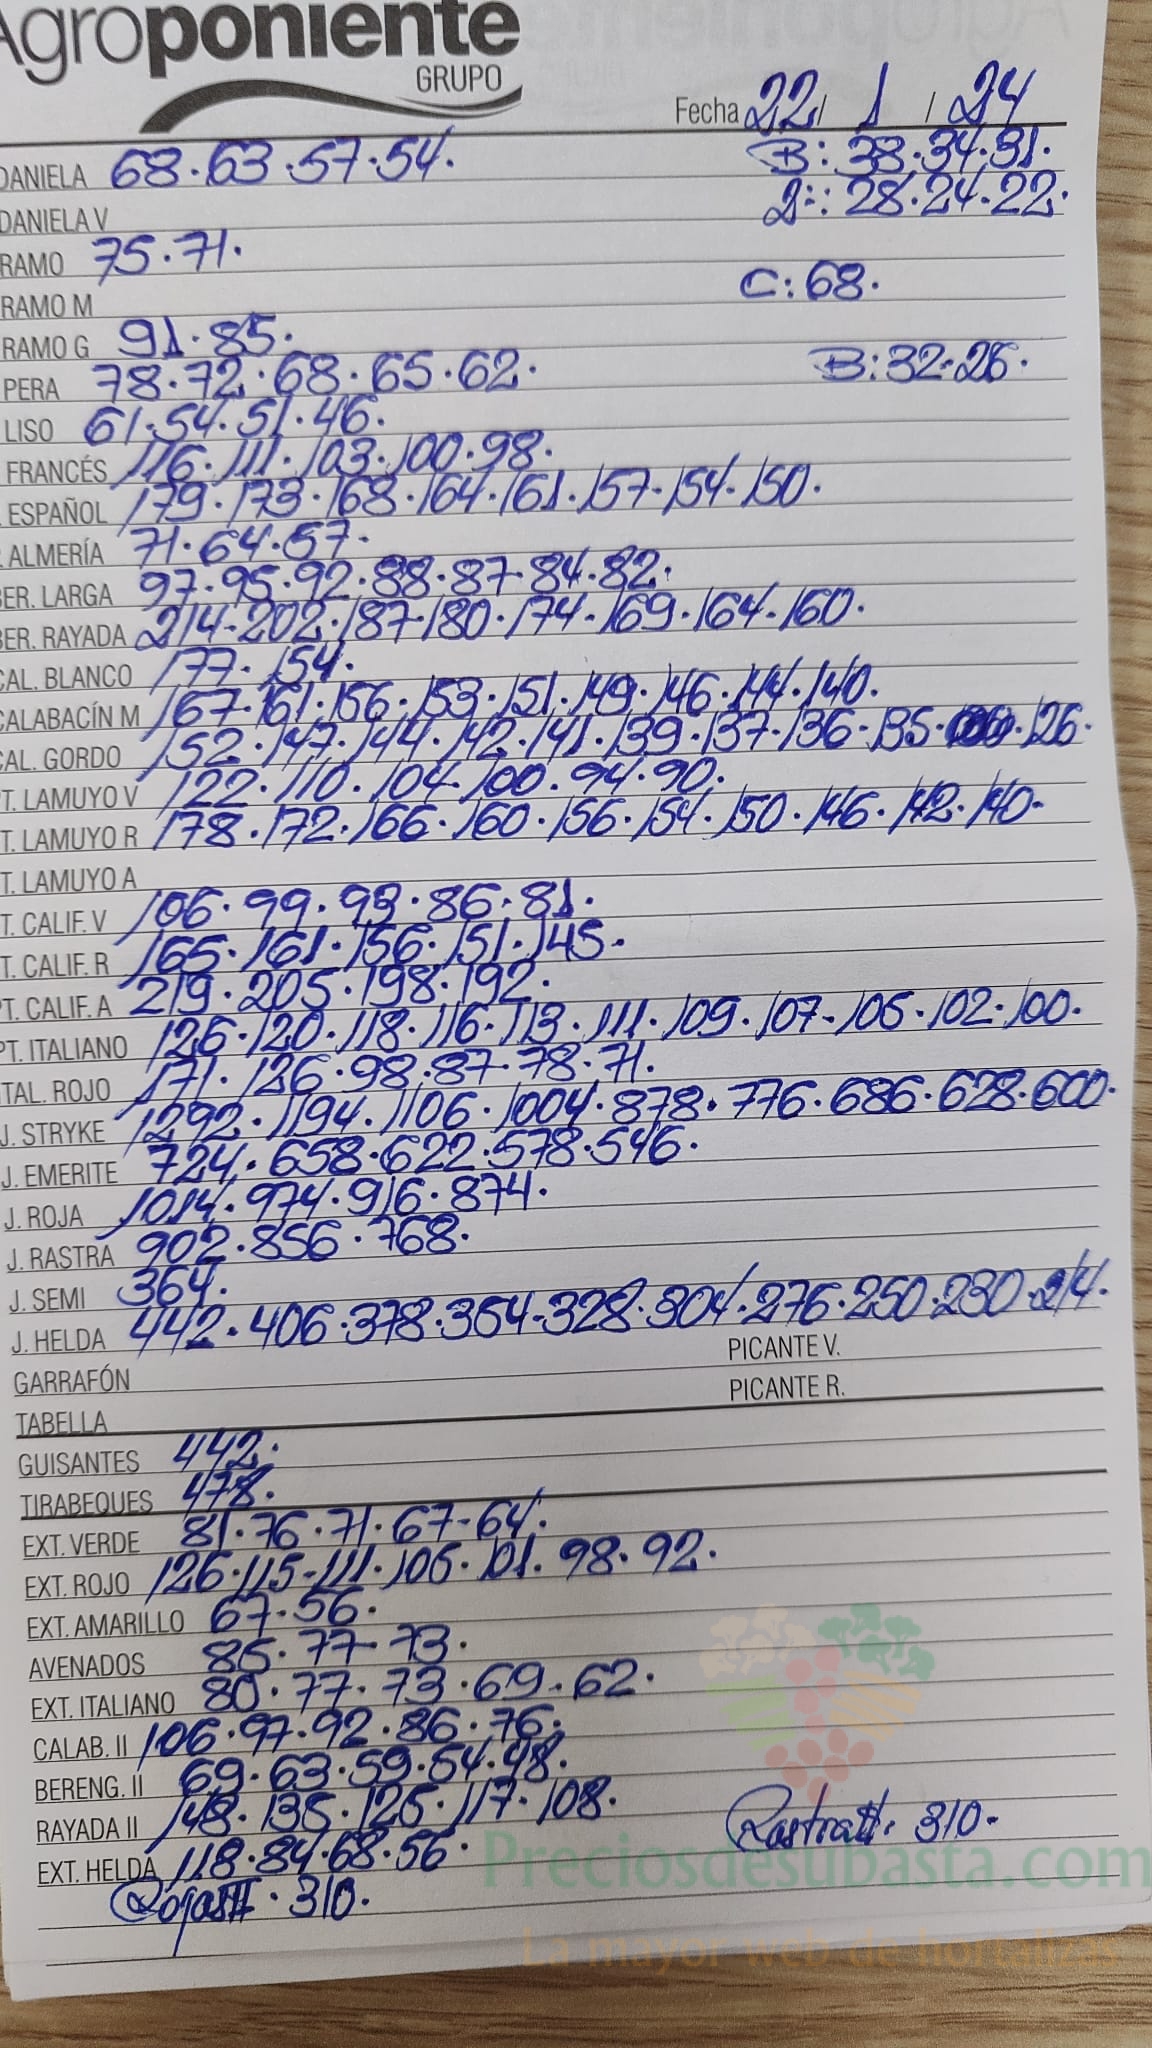 Agroponiente
GRUPO
Fecha 22 / 1 / 24
DANIELA 68.63.57.54. B: 38.34.31.
DANIELA V 2ª: 28.24.22.
RAMO 75.71.
RAMO M C: 68.
RAMO G 91.85.
PERA 78.72.68.65.62. B: 32.26.
LISO 61.54.51.46.
FRANCÉS 116.111.103.100.98.
ESPAÑOL 179.173.168.164.161.157.154.150.
ALMERÍA 71.64.57.
BER. LARGA 97.95.92.88.87.84.82.
BER. RAYADA 214.202.187.180.174.169.164.160.
CAL. BLANCO 177.154.
CALABACÍN M 167.161.156.153.151.149.146.144.140.
CAL. GORDO 152.147.144.142.141.139.137.136.135.126.
PT. LAMUYO V 122.110.104.100.94.90.
T. LAMUYO R 178.172.166.160.156.154.150.146.142.140.
T. LAMUYO A
T. CALIF. V 106.99.93.86.81.
T. CALIF. R 165.161.156.151.145.
PT. CALIF. A 219.205.198.192.
PT. ITALIANO 126.120.118.116.113.111.109.107.105.102.100.
ITAL. ROJO 171.126.98.87.78.71.
J. STRYKE 1292.1194.1106.1004.878.776.686.628.600.
J. EMERITE 724.658.622.578.546.
J. ROJA 1014.974.916.874.
J. RASTRA 902.856.768.
J. SEMI 364.
J. HELDA 442.406.378.354.328.304.276.250.230.214.
GARRAFÓN PICANTE V.
TABELLA PICANTE R.
GUISANTES 442.
TIRABEQUES 478.
EXT. VERDE 81.76.71.67.64.
EXT. ROJO 126.115.111.105.101.98.92.
EXT. AMARILLO 67.56.
AVENADOS 85.77.73.
EXT. ITALIANO 80.77.73.69.62.
CALAB. II 106.97.92.86.76.
BERENG. II 69.63.59.54.48.
RAYADA II 148.135.125.117.108. Rastra II. 310.
EXT. HELDA 118.84.68.56.
Rojas II. 310.
Preciosdesubasta.com
La mayor web de hortalizas